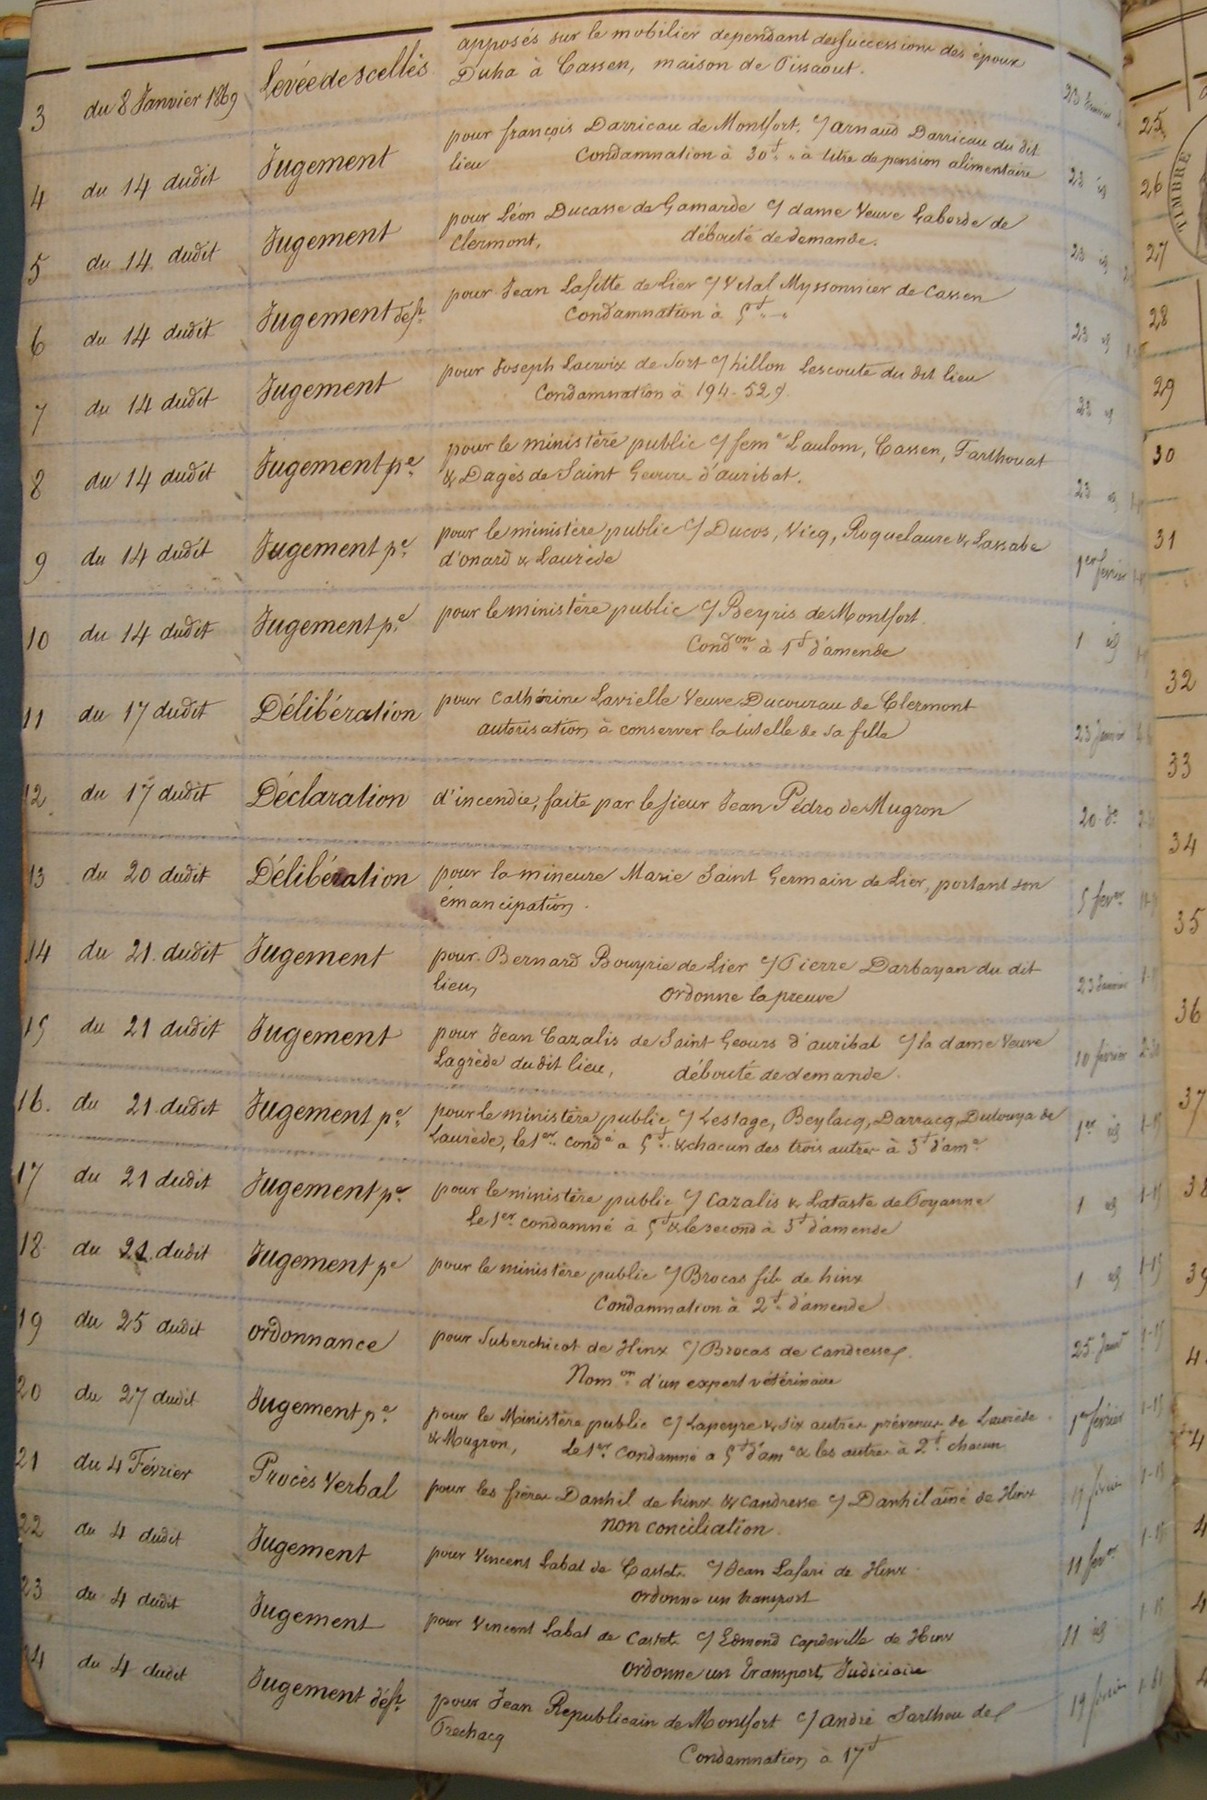 apposés sur le mobilier dependant des successions des époux
3 du 8 Janvier 1869 Levée de scellés Duha à Cassen, maison de Pissaout.
4 du 14 dudit Jugement pour françois Darricau de Montfort. c/ arnaud Darricau du dit
lieu Condamnation à 30f. à titre de pension alimentaire 23 id
5 du 14 dudit Jugement pour Léon Ducasse de Gamarde c/ dame Veuve Laborde de
Clermont, débouté de demande. 23 id
6 du 14 dudit Jugement déft. pour Jean Lafitte de Lier c/ Vital Myssonnier de Cassen
Condamnation à 5f. 23 id
7 du 14 dudit Jugement pour Joseph Lacroix de Sort c/ hillon Lescoute du dit lieu
Condamnation à 194-52 23 id
8 du 14 dudit Jugement pce. pour le ministère public c/ feme Laulom, Cassen, Farthouat
& Dagès de Saint Geours d'auribat. 23 id
9 du 14 dudit Jugement pce. pour le ministère public c/ Ducos, Vicq, Roquelaure & Lassabe
d'onard & Laurède 1er fevrier
10 du 14 dudit Jugement pce. pour le ministère public c/ Beyris de Montfort.
Condon. à 1f d'amende 1 id
11 du 17 dudit Délibération pour Cathérine Lavielle Veuve Ducournau de Clermont
autorisation à conserver la tutelle de sa fille 23 Janvier
12 du 17 dudit Déclaration d'incendie, faite par le sieur Jean Pédro de Mugron 20 do
13 du 20 dudit Délibération pour la mineure Marie Saint Germain de Lier, portant son
émancipation. 5 fevrer
14 du 21 dudit Jugement pour Bernard Bouyrie de Lier c/ Pierre Darbayan du dit
lieu, ordonne la preuve 23 Janvier
15 du 21 dudit Jugement pour Jean Cazalis de Saint Geours d'auribat c/ la dame Veuve
Lagrède du dit lieu, débouté de demande. 10 février
16. du 21 dudit Jugement pce. pour le ministère public c/ Lestage, Beylacq, Darracq, Dutouya de
Laurède, le 1er condé a 5f. & chacun des trois autres à 3f d'ame 1er id 1-15
17 du 21 dudit Jugement pce. pour le ministère public c/ Cazalis & Lataste de Poyanne
Le 1er condamné à 5f & le second à 3f d'amende 1 id 1-15
18 du 21 dudit Jugement pce pour le ministère public c/ Brocas fils de hinx
Condamnation à 2f. d'amende 1 id 1-15
19 du 25 dudit ordonnance pour Suberchicot de Hinx c/ Brocas de Candresse.
Nomon d'un expert vétérinaire 25 Janer 1-15
20 du 27 dudit Jugement pce. pour le Ministère public c/ Lapeyre & six autres prévenus de Laurède
& Mugron, Le 1er. Condamné a 5f d'ame & les autres à 2f. chacun 1er février 1-15
21 du 4 Février Procès Verbal pour les frères Danhil de hinx & Candresse c/ Danhil aîné de Hinx
non conciliation.
22 du 4 dudit Jugement pour Vincent Labat de Castets c/ Jean Lafari de Hinx
ordonne un transport 11 fever 1-15
23 du 4 dudit Jugement pour Vincent Labat de Castets c/ Edmond Capdeville de Hinx
ordonne un transport Judiciaire 11 id 1-15
24 du 4 dudit Jugement déft. pour Jean Republicain de Montfort c/ andré Sarthou de
Prechacq Condamnation à 17f 19 février
25
26
27
28
29
30
31
32
33
34
35
36
37
38
39
TIMBRE